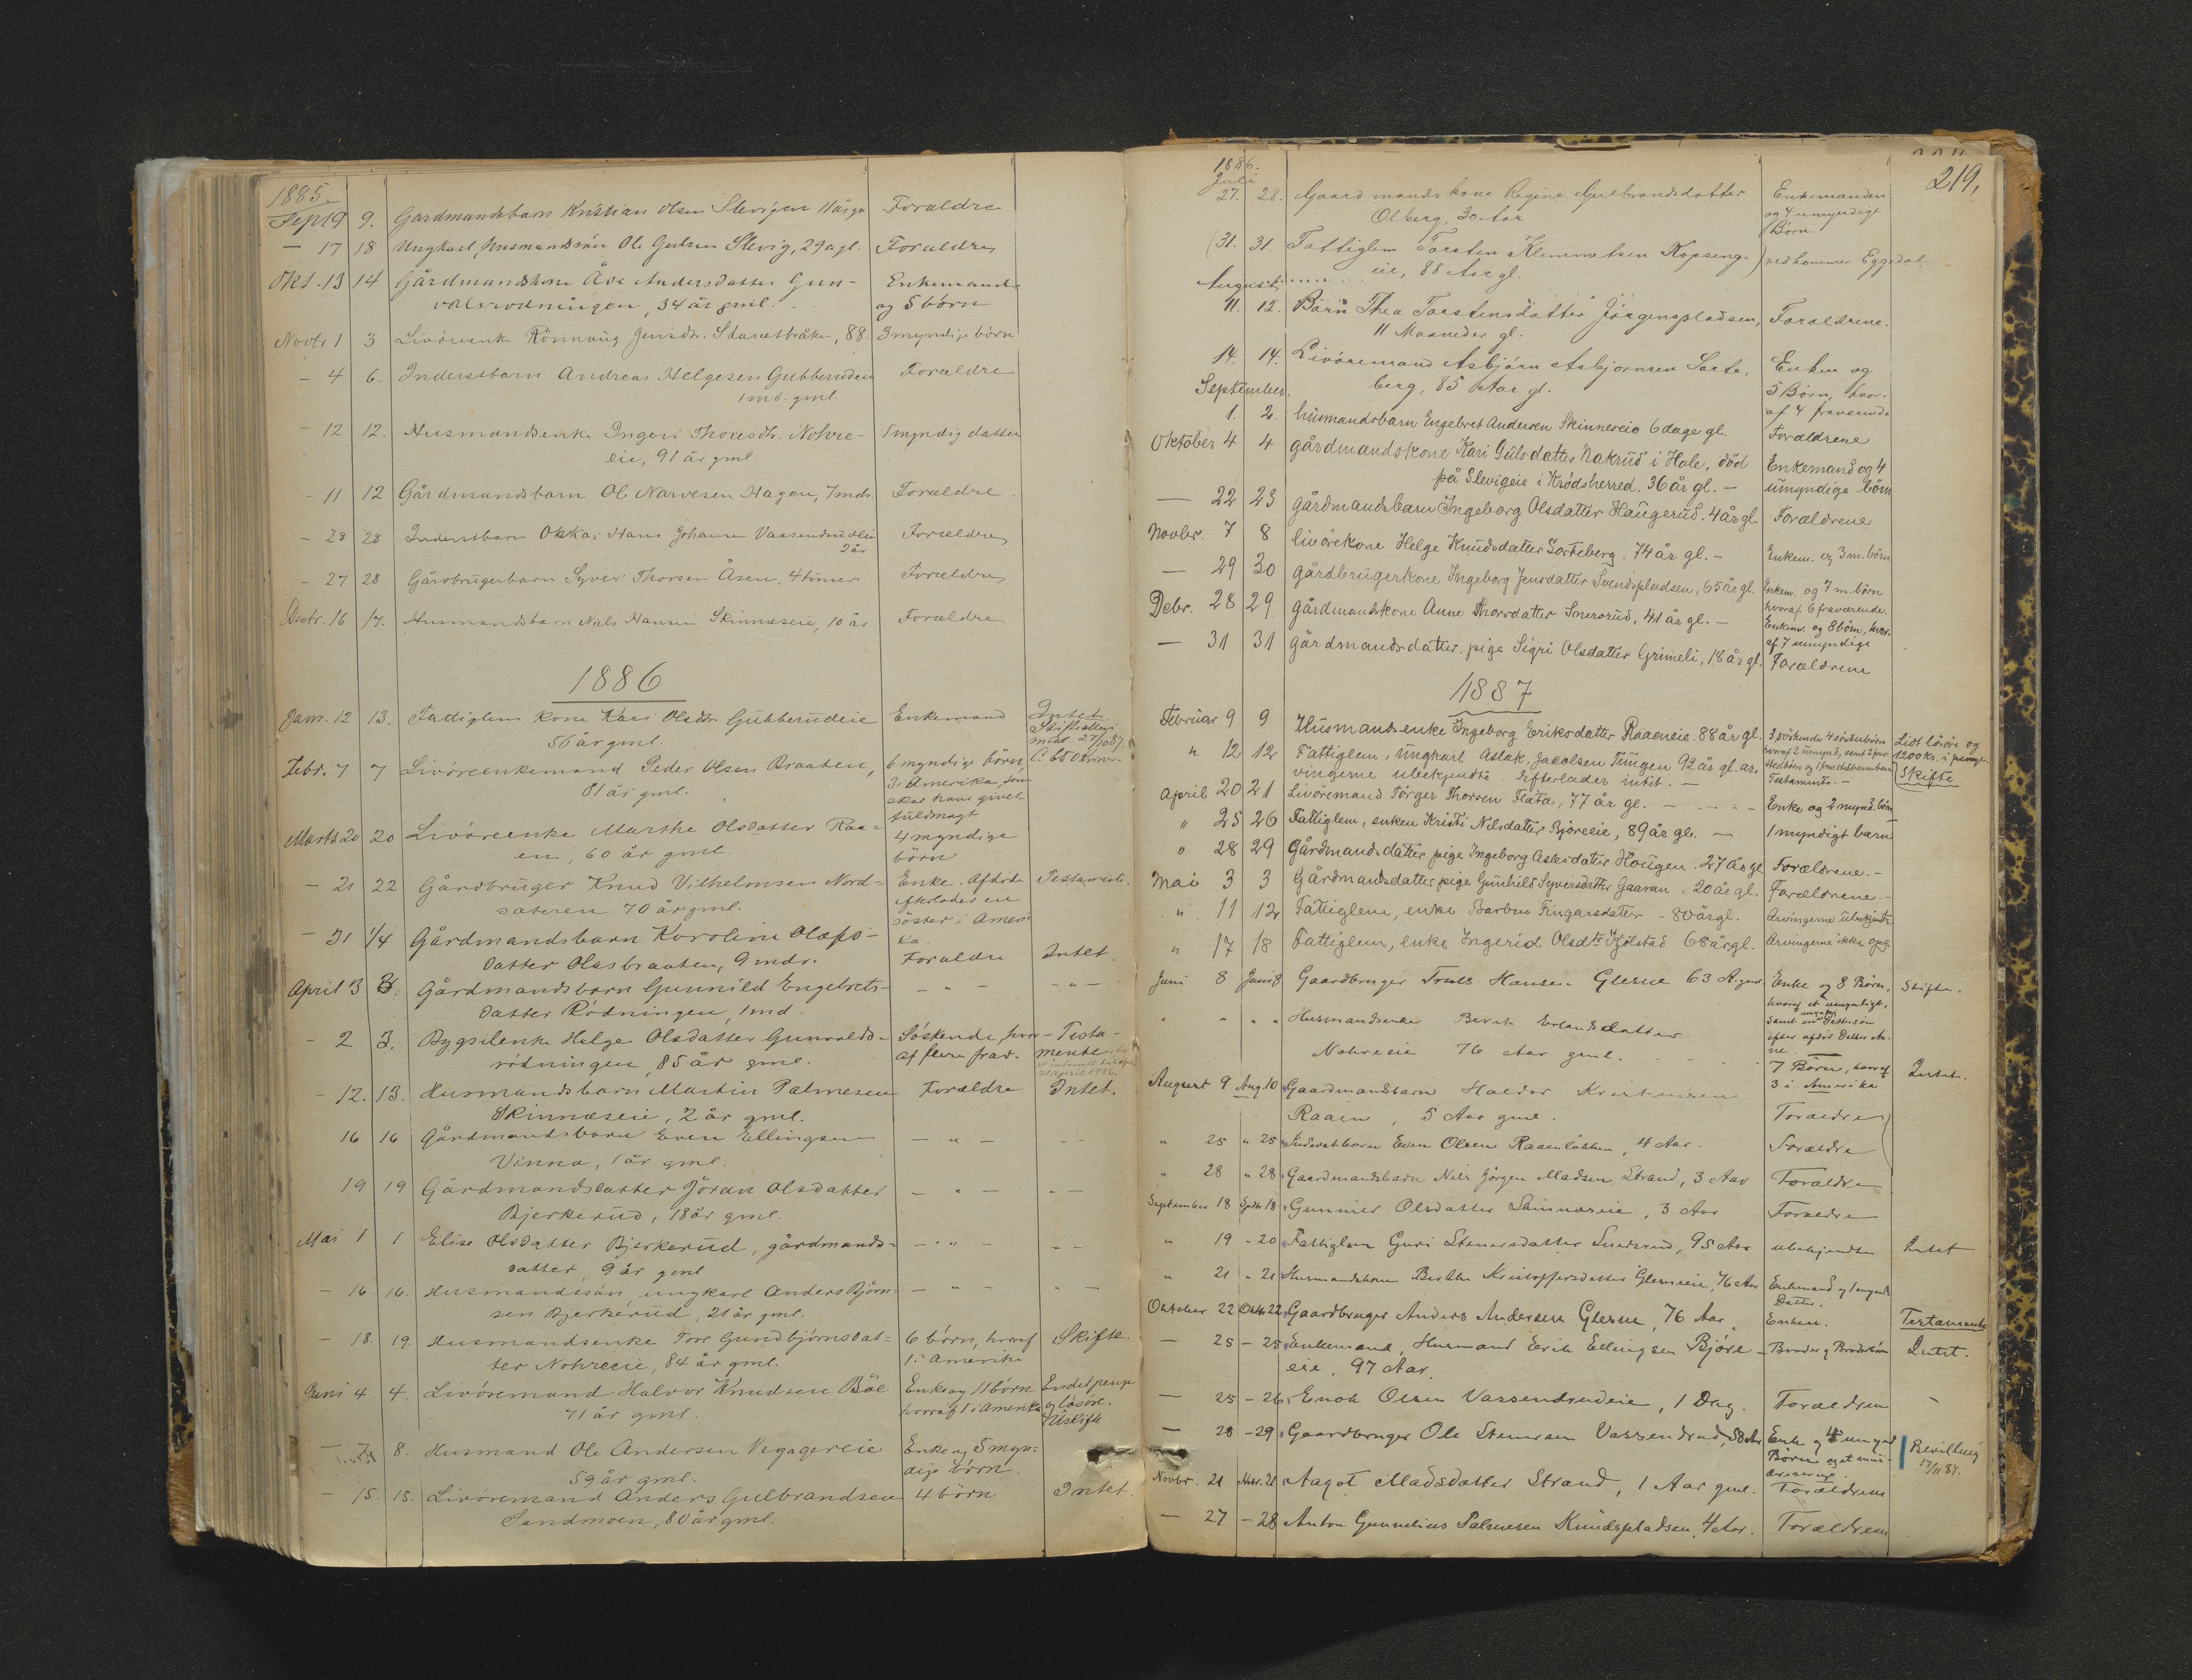 1885.
Sept 9 9. Gardmandsbarn Kristian Olsen Slevigen 11 år gl Forældre
— 17 18 Ungkarl, husmandssön Ole Gulsen Slevig, 29 a gl. Forældre
Okt. 13 14 Gårdmandskone Åse Andersdatter Gun- Enkemand
valsrodningen, 34 år gml. og 5 börn
Novbr 1 3 Livöreenke Rönnaug Jensdtr. 88. 3 myndige börn
— 4 6. Inderstbarn Andreas Helgesen Gubberudeie Forældre
1 md. gml.
— 12 12. Husmandsenke Ingeri Thoresdtr. Nohre- 1 myndig datter
eie, 91 år gml.
- 11 12 Gårdmandsbarn Ole Narvesen Hagen, 7 mdr. Forældre.
- 28 28 Inderstbarn Hans Johansen Forældre
2 år
- 27 28 Gårdbrugerbarn Syver Thorsen Åsen, 4 timer Forældre
Decbr. 16 17. Husmandsbarn Niels Hansen Skinneseie, 10 år Forældre
1886
Jan. 12 13. Fattiglem kone Kari Olsdtr Gubberudeie Enkemand Intet
56 år gml.
Febr. 7 7 Livöreenkemand Peder Olsen Braaten, 6 myndige börn
81 år gml. 3 i Amerika, som
skal have givet
fuldmagt
Marts 20 20 Livöreenke Marthe Olsdatter Raa- 4 myndige
en, 60 år gml. börn
- 21 22 Gårdbruger Knud Vilhelmsen Nord- Enke. Afdöde Testamente.
sateren 70 år gml. efterlader en
söster i Ameri
ka.
- 31 1/4 Gårdmandsbarn Karoline Olafs-
datter Olasbraaten, 9 mdr. Forældre Intet.
April 3 3. Gårdmandsbarn Gunnild Engebrets- - „ - - „ -
datter Rödningen, 1 md.
- 2 3. Bygselenke Helge Olsdatter Gunvalds- Söskende, hvor- Testa-
rödningen, 85 år gml. af flere frav. mente
- 12. 13. Husmandsbarn Martin Palmesen Forældre Intet.
Skinneseie, 2 år gml.
16 16 Gårdmandsbarn Even Ellingsen — „ — - -
Vinna, 1 år gml.
19 19 Gårdmandsdatter Jöran Olsdatter — „ — - —
Bjerkerud, 18 år gml.
Mai 1 1 Elise Olsdatter Bjerkerud, gårdmands- — „ — - -
datter, 9 år gml
- 16. 16. Husmandssön, ungkarl Anders Björn- — „ — - —
sen Bjerkerud, 21 år gml.
- 18. 19. Husmandsenke Tore Gundbjörnsdat- 6 börn, hvoraf Skifte.
ter Nohreeie, 84 år gml. 1 i Amerika
Juni 4 4. Livöremand Halvor Knudsen Böle Enke og 11 börn Endel penge
71 år gml. hvoraf 1 i Amerika og lösöre.
Uskifte
8. Husmand Ole Andersen Enke og 5 myn-
59 år gml. dige börn.
— 15. 15. Livöremand Anders Gulbrandsen 4 börn Intet.
Sandmoen, 80 år gml.
219,
1886.
Juli
27. 28. Gaardmandskone Regine Gulbrandsdatter Enkemanden
Olberg, 30 Aar og 4 umyndige
Börn.
(31. 31. Fattiglem Torsten Klemmetsen Kopseng- ) vedkommer Eggedal
eie, 88 Aar gl.
August
11. 12. Barn Thea Torstensdatter Jörgenspladsen, Forældrene.
11 Maaneder gl.
14. 14. Livöremand Asbjörn Asbjornsen Sorte- Enken og
berg, 85 Aar gl. 5 Börn, hvor-
September. af 4 fraværende
1. 2. husmandsbarn Engebret Andersen Skinneseie 6 dage gl. Forældrene
Oktober 4 4 gårdmandskone Kari Gulsdatter Nakrud i Hole, död Enkemand og 4
på Slevigeie i Krödsherred. 36 år gl. — umyndige börn
— 22 23 gårdmandsbarn Ingeborg Olsdatter Haugerud. 4 år gl. Forældrene
Novbr. 7 8 livörekone Helge Knudsdatter Sorteberg. 74 år gl. — Enkem. og 3 m. börn
— 29 30 gårdbrugerkone Ingeborg Jensdatter Svendspladsen, 65 år gl. Enkem. og 7 m. börn
hvoraf 6 fraværende.
Debr. 28 29 gårdmandskone Anne Thorsdatter Snersrud, 41 år gl. — Enkem. og 8 börn, hvor-
af 7 umyndige
— 31 31 gårdmandsdatter, pige Sigri Olsdatter Grimeli, 18 år gl. Forældrene
1887
Februar 9 9 Husmandsenke Ingeborg Eriksdatter Raaeneie. 88 år gl. 3 söskende 4 søsterbörn Lidt lösöre og
1200 kr. i penge.
„ 12 12 Fattiglem, ungkarl Aslak Jacolsen Tungen 92 år gl. ar- Skifte
vingerne ubekjendte. Efterlader intet. — Testamente. —
April 20 21 Livöremand Törger Thorsen Flata, 77 år gl. — - - - - Enke og 2 mynd. börn
„ 25 26 Fattiglem, enken Kristi Nilsdatter Björeeie, 89 år gl. — 1 myndigt barn
„ 28 29 Gårdmandsdatter pige Ingeborg Aslesdatter Haugen. 27 år gl Forældrene. —
Mai 3 3 Gårdmandsdatter pige Gunhild Syversdatter Gaaran. 20 år gl. Forældrene —
„ 11 12 Fattiglem, enke Barbro Fingarsdatter - 80 år gl. Arvingerne ubekjendte
„ 17 18 Fattiglem, enke Ingerid Olsdtr Kjölstad 68 år gl. Arvingerne ikke opg.
Juni 8 Juni 8 Gaardbruger Truls Hansen Glesne 63 A. gml Enke og 8 Børn, Skifte.
hvoraf et umyndigt,
samt en Dattersön
efter afdöd Datter An-
ne
„ „ „ „ Husmandsenke Berit Erlandsdatter
Nohreeie 76 Aar gml. 7 Børn, hvoraf Intet.
3 i Amerika
August 9 Aug. 10 Gaardmandsbarn Halvor Kristensen
Raaen, 5 Aar gml. Forældre
„ 25 „ 25 Inderstbarn Even Olsen Raaenløkken, 4 Aar. Forældre
„ 28 „ 28 Gaardmandsbarn Nils Jørgen Madsen Strand, 3 Aar Forældre
September 18 Septbr 18 Gunnild Olsdatter 3 Aar Forældre
„ 19 - 20 Fattiglem Guri Stenersdatter Snersrud, 95 Aar ubekjendte Intet
„ 21 „ 21 Husmandskone Berthe Kristoffersdatter Glesneeie, 76 Aar Enkemand og 1 mynd.
Datter.
Oktober 22 Oktb. 22 Gaardbruger Anders Andersen Glesne, 76 Aar. Enken. Testamente
— 25 - 25 Enkemand, Husmand Erik Ellingsen Björe- Broder og Broderbörn Intet.
eie. 97 Aar.
— 25 - 26 Enok Olsen Vassendrudeie, 1 Dag. Forældrene —
— 28 - 29 Gaardbruger Ole Stenersen Vassendrud, 58 Aar Enke og 4 umynd Bevilling
Börn 17/11 87.
Novbr. 21 Nvbr. 21 Aagot Madsdatter Strand, 1 Aar gml. Forældrene
— 27 - 28 Anton Gunnelius Palmesen Knudspladsen, 4 Aar. Forældrene